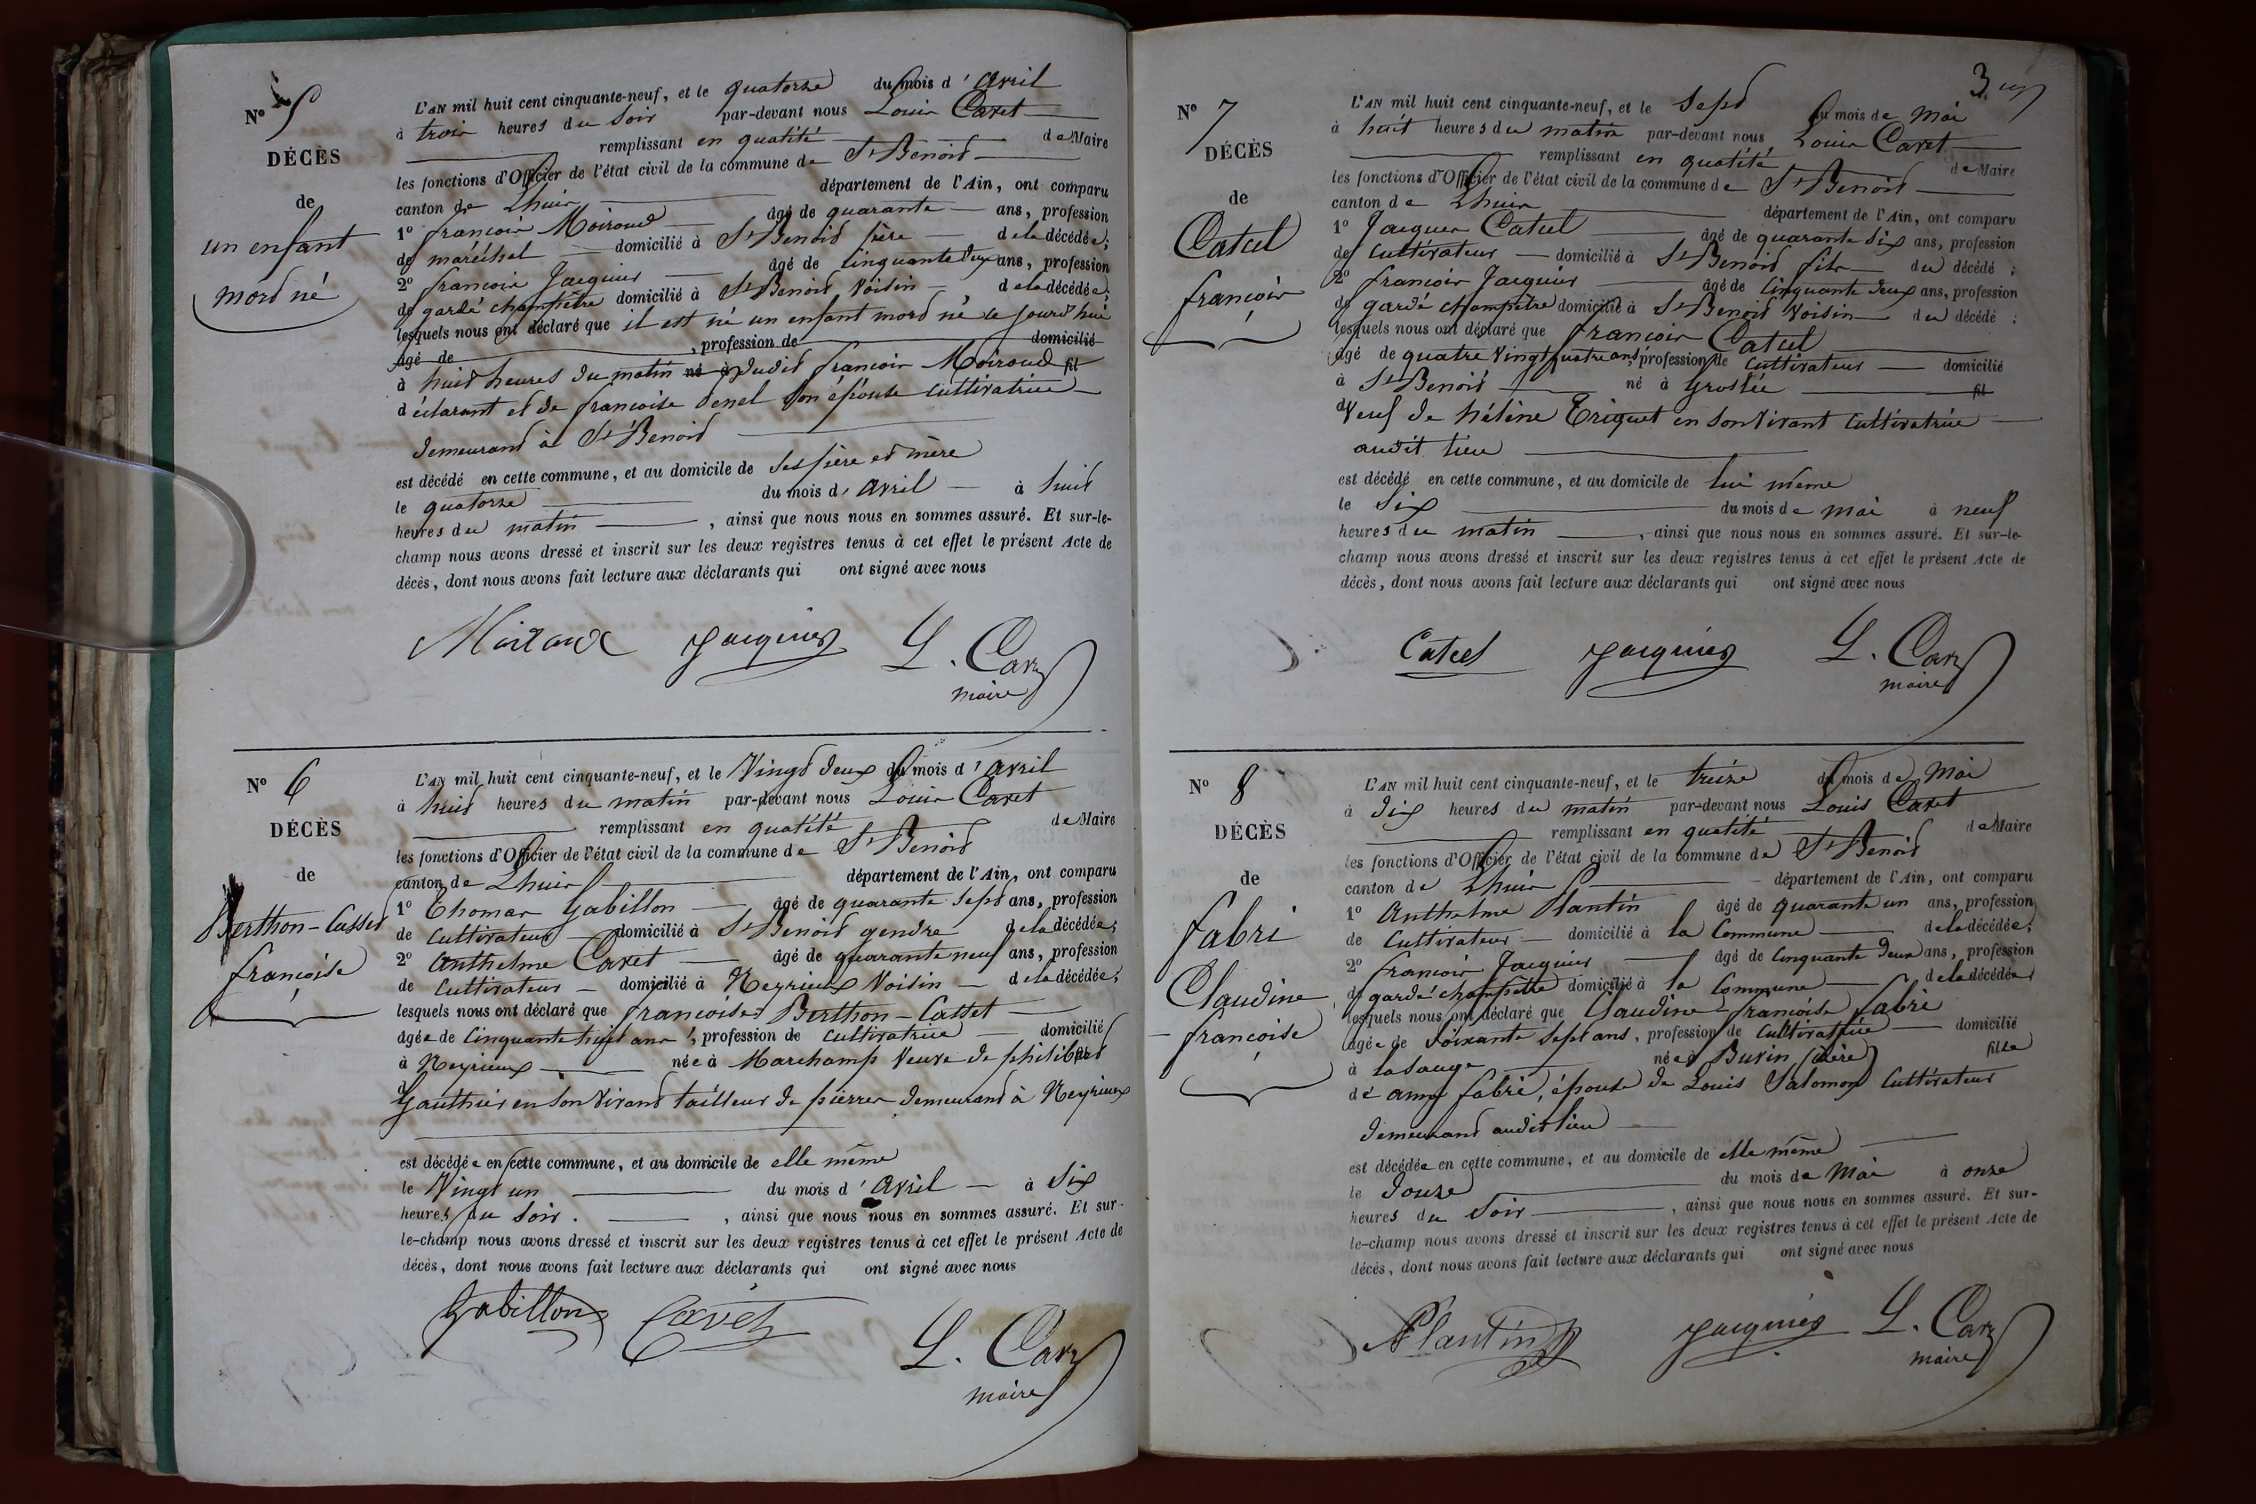 N° 5
DÉCÈS
de
un enfant
mord né
L'AN mil huit cent cinquante-neuf, et le quatorze du mois d'avril
à trois heures du soir par-devant nous Louis Cavet
remplissant en qualité de Maire
les fonctions d'Officier de l'état civil de la commune de St Benoid
canton de Lhuis département de l'Ain, ont comparu
1° françois Moiroud âgé de quarante ans, profession
de maréchal domicilié à St Benoid père de la décédée;
2° françois Jacquier âgé de cinquante deux ans, profession
de garde champêtre domicilié à St Benoid Voisin de la décédée;
lesquels nous ont déclaré que il est né un enfant mord né ce jourd'hui
âgé de , profession de domicilié
à huid heures du matin né à dudit françois Moiroud fil
déclarant et de françoise Genel son épouse cultivatrice
demeurand à St Benoid
est décédé en cette commune, et au domicile de ses père et mère
le quatorze du mois d'avril à huid
heures du matin , ainsi que nous nous en sommes assuré. Et sur-le-
champ nous avons dressé et inscrit sur les deux registres tenus à cet effet le présent Acte de
décès, dont nous avons fait lecture aux déclarants qui ont signé avec nous
Jacquier L. Cavet
maire
N° 6
DÉCÈS
de
Berthon-Casset
françoise
L'AN mil huit cent cinquante-neuf, et le Vingd deux du mois d'avril
à huid heures du matin par-devant nous Louis Cavet
remplissant en qualité de Maire
les fonctions d'Officier de l'état civil de la commune de St Benoid
canton de Lhuis département de l'Ain, ont comparu
1° Thomas Gabillon âgé de quarante sepd ans, profession
de cultivateur domicilié à St Benoid gendre de la décédée;
2° Anthelme Cavet âgé de quarante neuf ans, profession
de cultivateur domicilié à Neyrieux Voisin de la décédée;
lesquels nous ont déclaré que françoise Berthon-Casset
âgée de cinquante huit ans, profession de cultivatrice domicilié
à Neyrieux née à Marchamp Veuve de philiberd
Gauthier en son Vivand tailleur de pierres demeurand à Neyrieux
est décédée en cette commune, et au domicile de elle même
le Vingt un du mois d'avril à Six
heures du soir. , ainsi que nous nous en sommes assuré. Et sur-
le-champ nous avons dressé et inscrit sur les deux registres tenus à cet effet le présent Acte de
décès, dont nous avons fait lecture aux déclarants qui ont signé avec nous
Gabillon Cavet L. Cavet
maire
3.
N° 7
DÉCÈS
de
Catcel
françois
L'AN mil huit cent cinquante-neuf, et le Sepd du mois de Mai
à huit heures du matin par-devant nous Louis Cavet
remplissant en qualité de Maire
les fonctions d'Officier de l'état civil de la commune de St Benoid
canton de Lhuis département de l'Ain, ont comparu
1° Jacques Catcel âgé de quarante six ans, profession
de cultivateur domicilié à St Benoid fils du décédé;
2° françois Jacquier âgé de cinquante deux ans, profession
de garde champêtre domicilié à St Benoid Voisin du décédé:
lesquels nous ont déclaré que françois Catcel
âgé de quatre Vingt quatre ans, profession de cultivateur domicilié
à St Benoid né à Groslée fil
d Veuf de hélène Triquet en son Vivant cultivatrice
audit lieu
est décédé en cette commune, et au domicile de lui même
le Six du mois de Mai à neuf
heures du matin , ainsi que nous nous en sommes assuré. Et sur-le-
champ nous avons dressé et inscrit sur les deux registres tenus à cet effet le présent Acte de
décès, dont nous avons fait lecture aux déclarants qui ont signé avec nous
Catcel Jacquier L. Cavet
maire
N° 8
DÉCÈS
de
fabri
Claudine
françoise
L'AN mil huit cent cinquante-neuf, et le treize du mois de Mai
à dix heures du matin par-devant nous Louis Cavet
remplissant en qualité de Maire
les fonctions d'Officier de l'état civil de la commune de St Benoid
canton de Lhuis département de l'Ain, ont comparu
1° Anthelme Plantin âgé de quarante un ans, profession
de cultivateur domicilié à la commune de la décédée;
2° françois Jacquier âgé de cinquante deux ans, profession
de garde champêtre domicilié à la commune de la décédée
lesquels nous ont déclaré que Claudine françoise fabri
âgée de soixante sept ans, profession de cultivatrice domicilié
à la sauge née à Buvin (isère) fille
de amy fabri, épouse de Louis Salomon cultivateur
demeurand audit lieu
est décédée en cette commune, et au domicile de elle même
le Douze du mois de Mai à onze
heures du soir , ainsi que nous nous en sommes assuré. Et sur-
le-champ nous avons dressé et inscrit sur les deux registres tenus à cet effet le présent Acte de
décès, dont nous avons fait lecture aux déclarants qui ont signé avec nous
Plantin Jacquier L. Cavet
maire